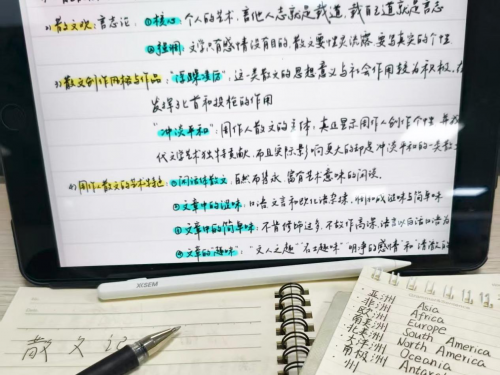 2)散文观:言志论:①核心:个人的艺术,言他人之志就是载道,载自己道就是言志
②强调:文学只有感情没有目的,散文要性灵流露,要写真实的个性
3)散文创作风格与作品:"浮躁凌厉":这一类散文的思想意义与社会作用较为积极,
发挥了匕首和投枪的作用
"冲淡平和":周作人散文的主体,真正显示周作人创作个性
代文学艺术独特贡献,而且实际影响更大的却是冲淡平和的一类
4)周作人散文的艺术特点:①闲话体散文,自然而隽永,富有艺术意味的闲谈。
②文章中的涩味:口语文言和欧化语杂糅,
③文章中的简单味:不肯修饰过多,不故作高深,
④文章的"趣味":"文人之趣""名士趣味"明净的感情和清澈的
XISEM
散文
亚洲 Asia
非洲 Africa
欧洲 Europe
南美洲 South America
北美洲 North America
大洋洲 Oceania
南极洲